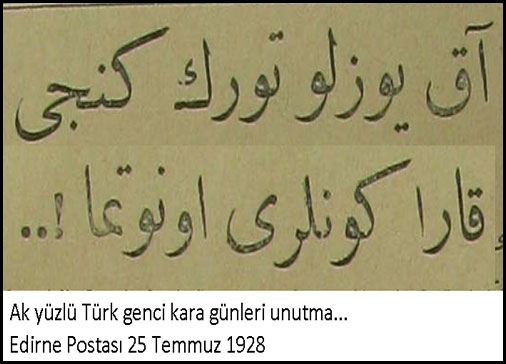 آق یوزلو تورك كنجی
قارا كونلری اونوتما !..
Ak yüzlü Türk genci kara günleri unutma...
Edirne Postası 25 Temmuz 1928